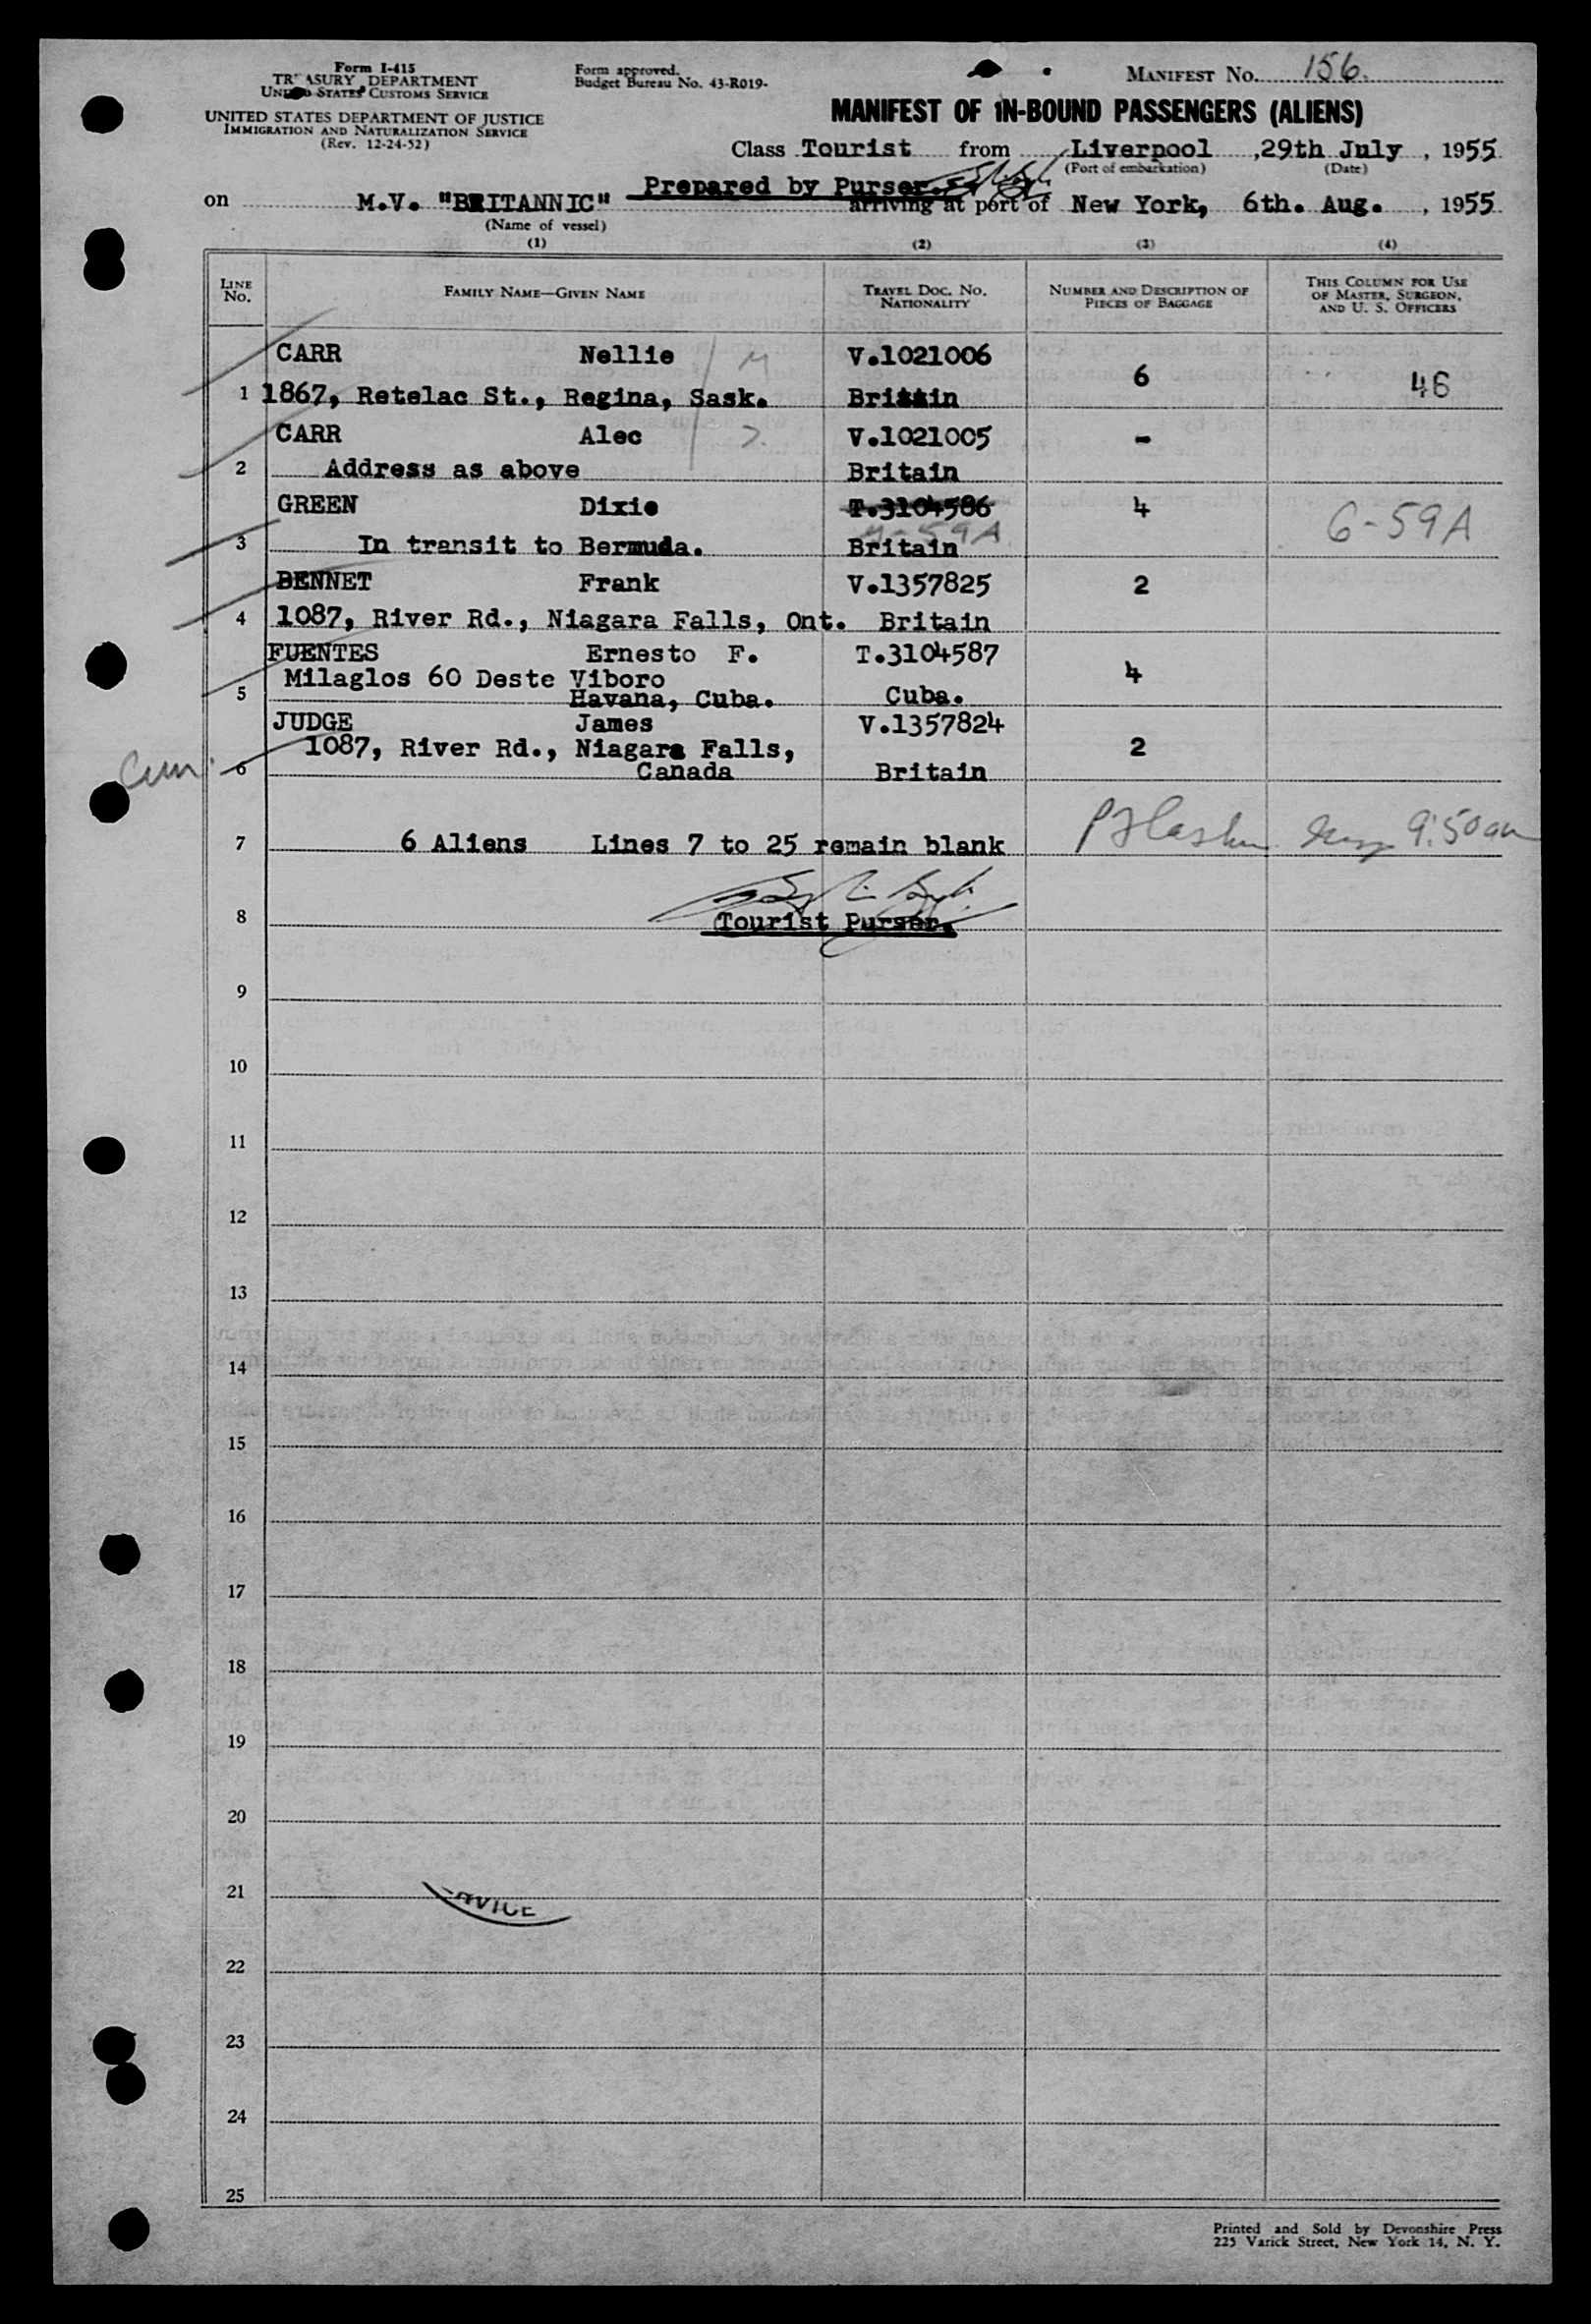 Form I-415
TREASURY DEPARTMENT
UNITED STATES CUSTOMS SERVICE
UNITED STATES DEPARTMENT OF JUSTICE
IMMIGRATION AND NATURALIZATION SERVICE
(Rev. 12-24-52)
Form approved.
Budget Bureau No. 43-R019-
MANIFEST NO. 156.
MANIFEST OF IN-BOUND PASSENGERS (ALIENS)
Class Tourist from Liverpool, 29th July, 1955
(Port of embarkation) (Date)
Prepared by Purser.
on M.V. "BRITANNIC" arriving at port of New York, 6th. Aug., 1955
(Name of vessel)
(1) (2) (3) (4)
LINE NO. FAMILY NAME—GIVEN NAME TRAVEL DOC. NO. NATIONALITY NUMBER AND DESCRIPTION OF PIECES OF BAGGAGE THIS COLUMN FOR USE OF MASTER, SURGEON, AND U. S. OFFICERS
CARR Nellie V.1021006 6 46
1 1867, Retelac St., Regina, Sask. Britain
CARR Alec V.1021005 -
2 Address as above Britain
GREEN Dixie T.3104586 4 G-59A
3 In transit to Bermuda. Britain
BENNET Frank V.1357825 2
4 1087, River Rd., Niagara Falls, Ont. Britain
FUENTES Ernesto F. T.3104587 4
Milaglos 60 Deste Viboro
5 Havana, Cuba. Cuba.
JUDGE James V.1357824
1087, River Rd., Niagara Falls, 2
6 Canada Britain
7 6 Aliens Lines 7 to 25 remain blank 9:50 am
8 Tourist Purser.
9
10
11
12
13
14
15
16
17
18
19
20
21
RVICE
22
23
24
25
Printed and Sold by Devonshire Press
225 Varick Street, New York 14, N. Y.